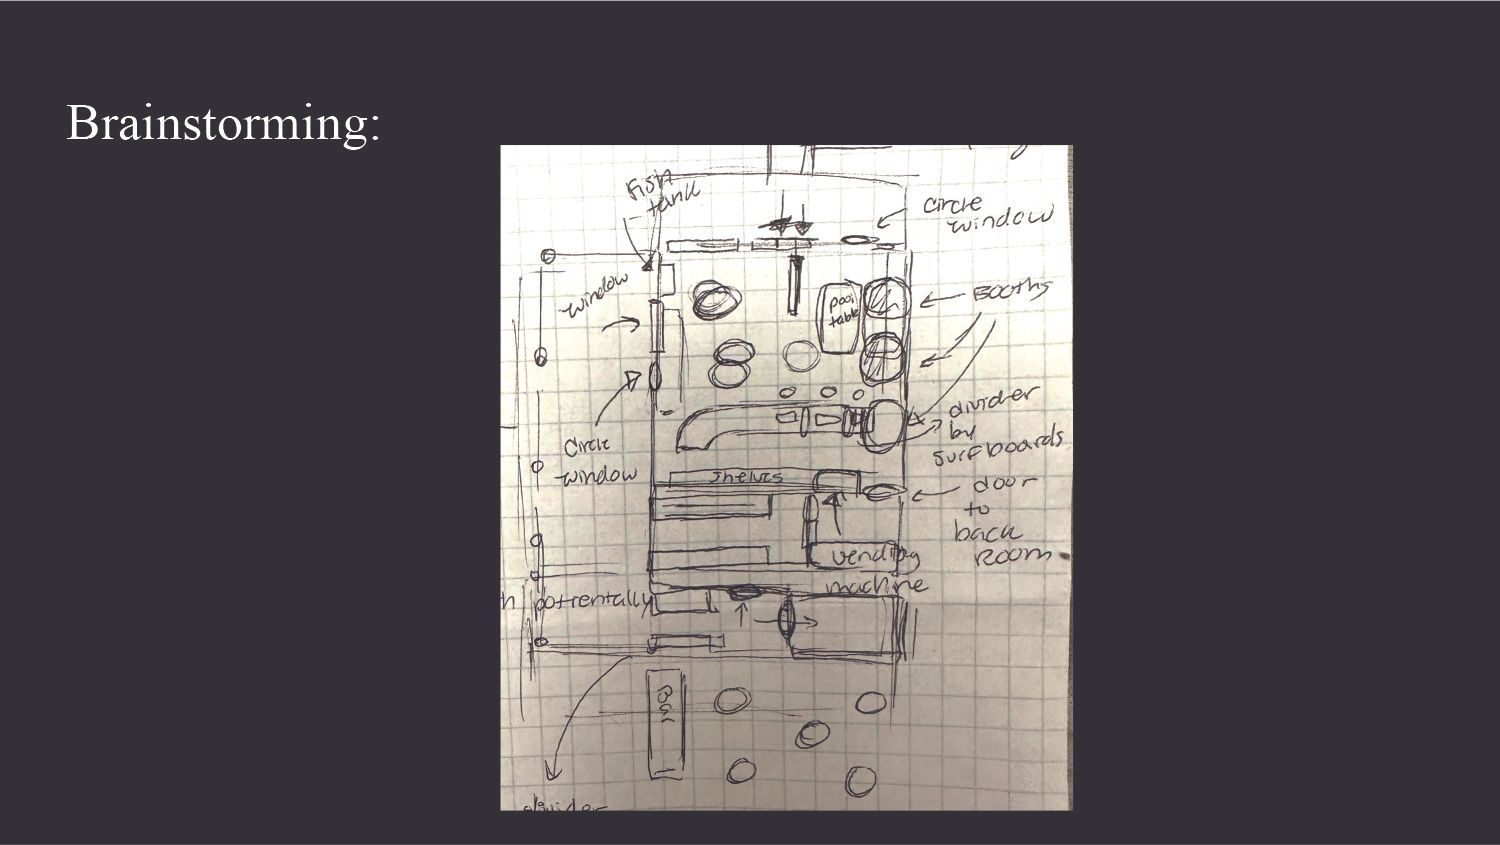 Brainstorming:
Fish
tank
circle
window
window
Booths
pool
table
divider
by
surfboards
Circle
window
shelves
door
to
back
Room
vending
machine
potrentally
Bar
divider